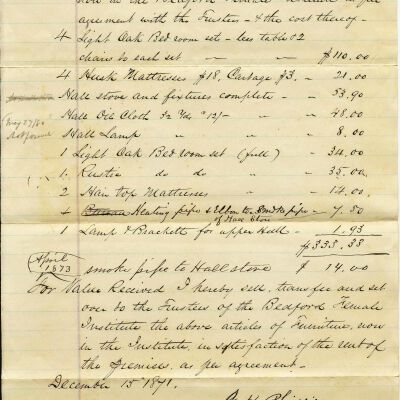 now in the Bedford
agreement with the Trustees - & the cost thereof -
4 Light Oak Bed room set - less table & 2
chairs to each set - $110.00
4 Husk Mattresses $18. Cartage $3. - 21.00
Hall stove and fixtures complete - 53.90
Hall Oil Cloth 32 Yds @ 12/- 48.00
Hall Lamp - 8.00
1 Light Oak Bed room set (full) - 34.00
1. Rustic do do - 35.00
2 Hair top Mattresses - 14.00
4 Heating pipe & Elbow to Smoke pipe - 7.50
of Hall Stove
1 Lamp & Bracketts for upper Hall - 1.93
$333.33
April
1873
smoke pipe to Hall stove $14.00
For Value Recieved I hereby sell, transfer and set
over to the Trustees of the Bedford Female
Institute the above articles of Furniture, now
in the Institute, in satisfaction of the rent of
the premises, as per agreement -
December 15 1871.